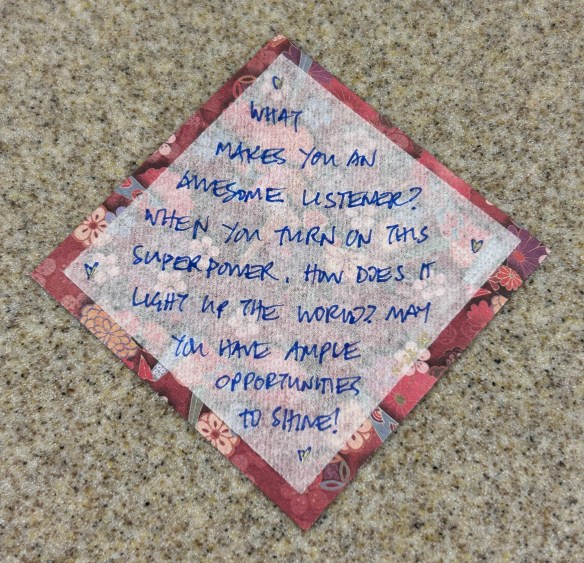 WHAT
MAKES YOU AN
AWESOME LISTENER?
WHEN YOU TURN ON THIS
SUPERPOWER, HOW DOES IT
LIGHT UP THE WORLD? MAY
YOU HAVE AMPLE
OPPORTUNITIES
TO SHINE!